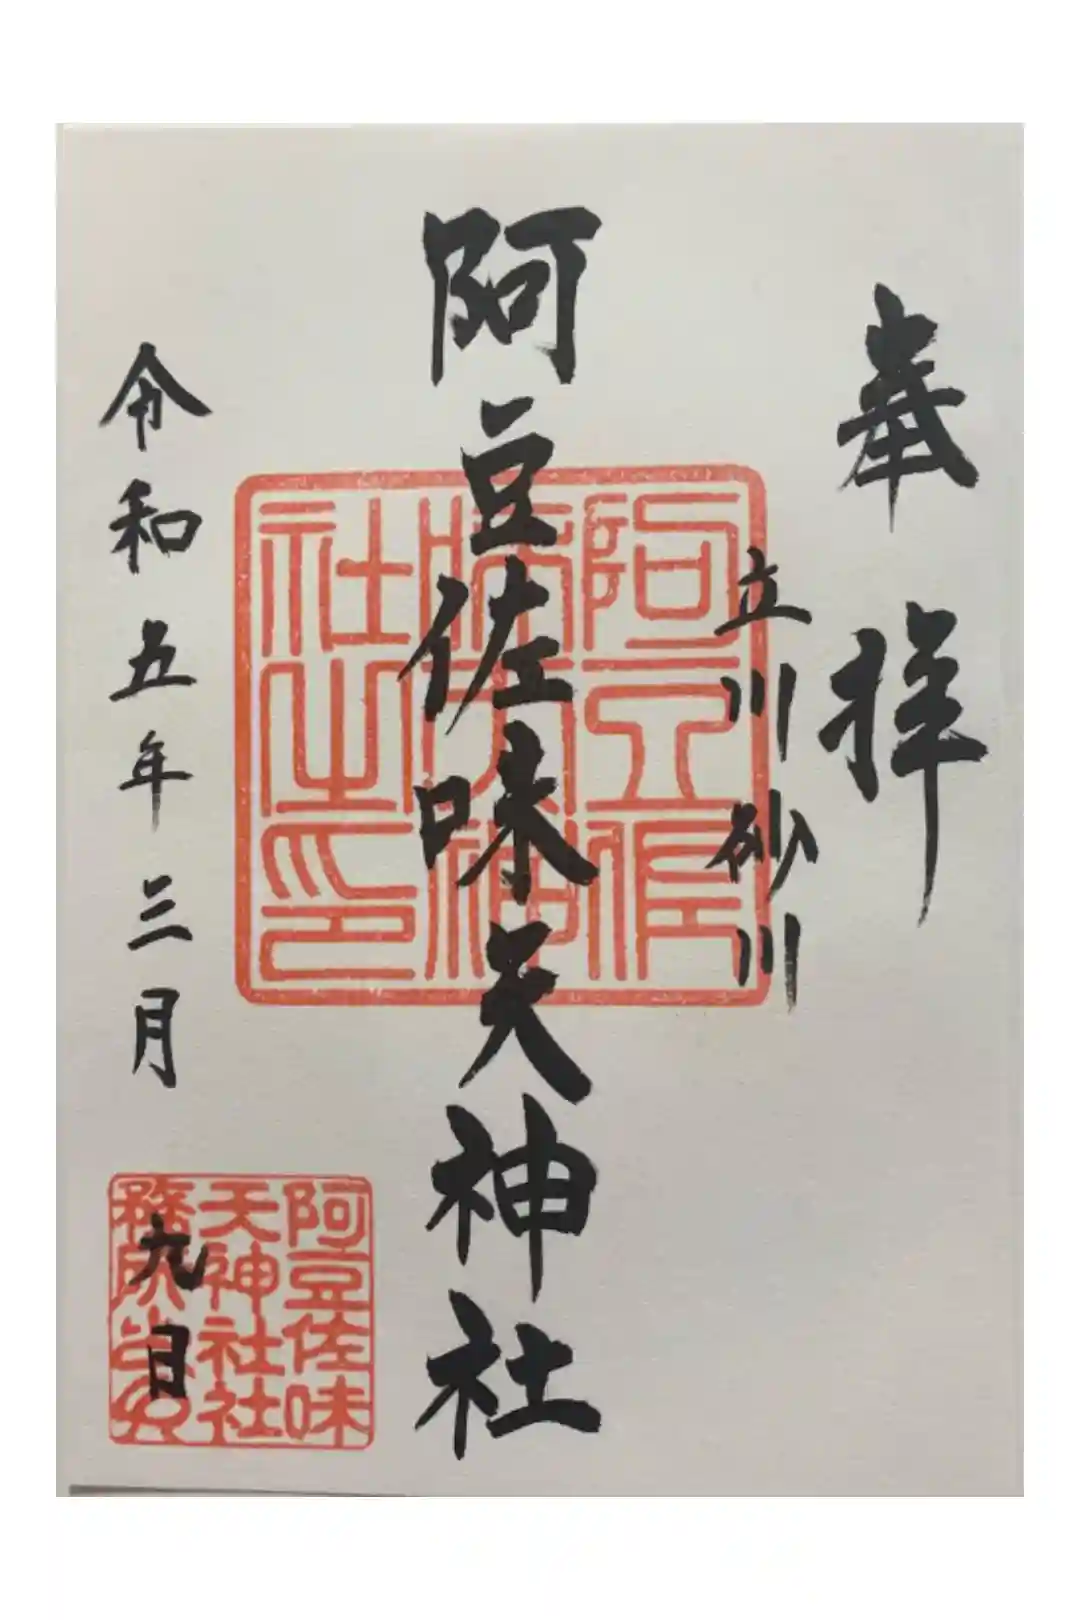 奉拝
立川砂川
阿豆佐味天神社
令和五年三月九日
阿豆佐味天神社之印
阿豆佐味
天神社社
務所之印